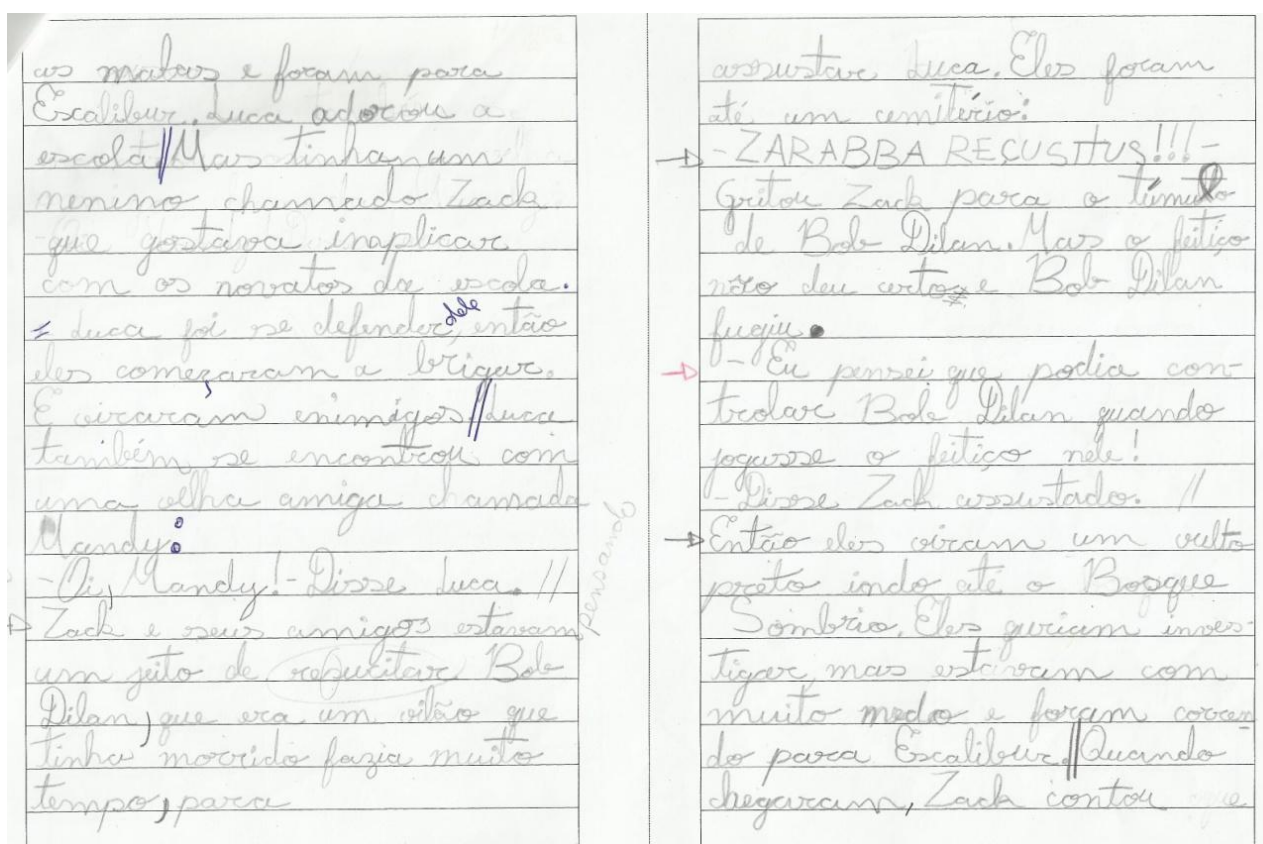 as malas e foram para
Escalibur. Luca adorou a
escola// Mas tinhan um
menino chamado Zack
que gostava inaplicar
com os novatos da escola.
= Luca foi se defender dele, então
eles começaram a brigar.
E viraram enimigos// Luca
também se encontrou com
uma velha amiga chamada
Mandy:
-Oi, Mandy!-Disse Luca. //
Zack e seus amigos estavam pensando
um jeito de resucitar Bob
Dilan, que era um vilão que
tinha morrido fazia muito
tempo, para
assustar Luca. Eles foram
até um cemitério:
-ZARABBA REÇUSITUS!!!-
Gritou Zack para o túmulo
de Bob Dilan. Mas o feitiço
não deu certo e Bob Dilan
fugiu.
-Eu pensei que podia con-
trolar Bob Dilan quando
jogasse o feitiço nele!
-Disse Zack assustado. //
Então eles viram um vulto
preto indo até o Bosque
Sombrio. Eles queriam inves-
tigar, mas estavam com
muito medo e foram corren-
do para Escalibur.// Quando
chegaram, Zack contou que